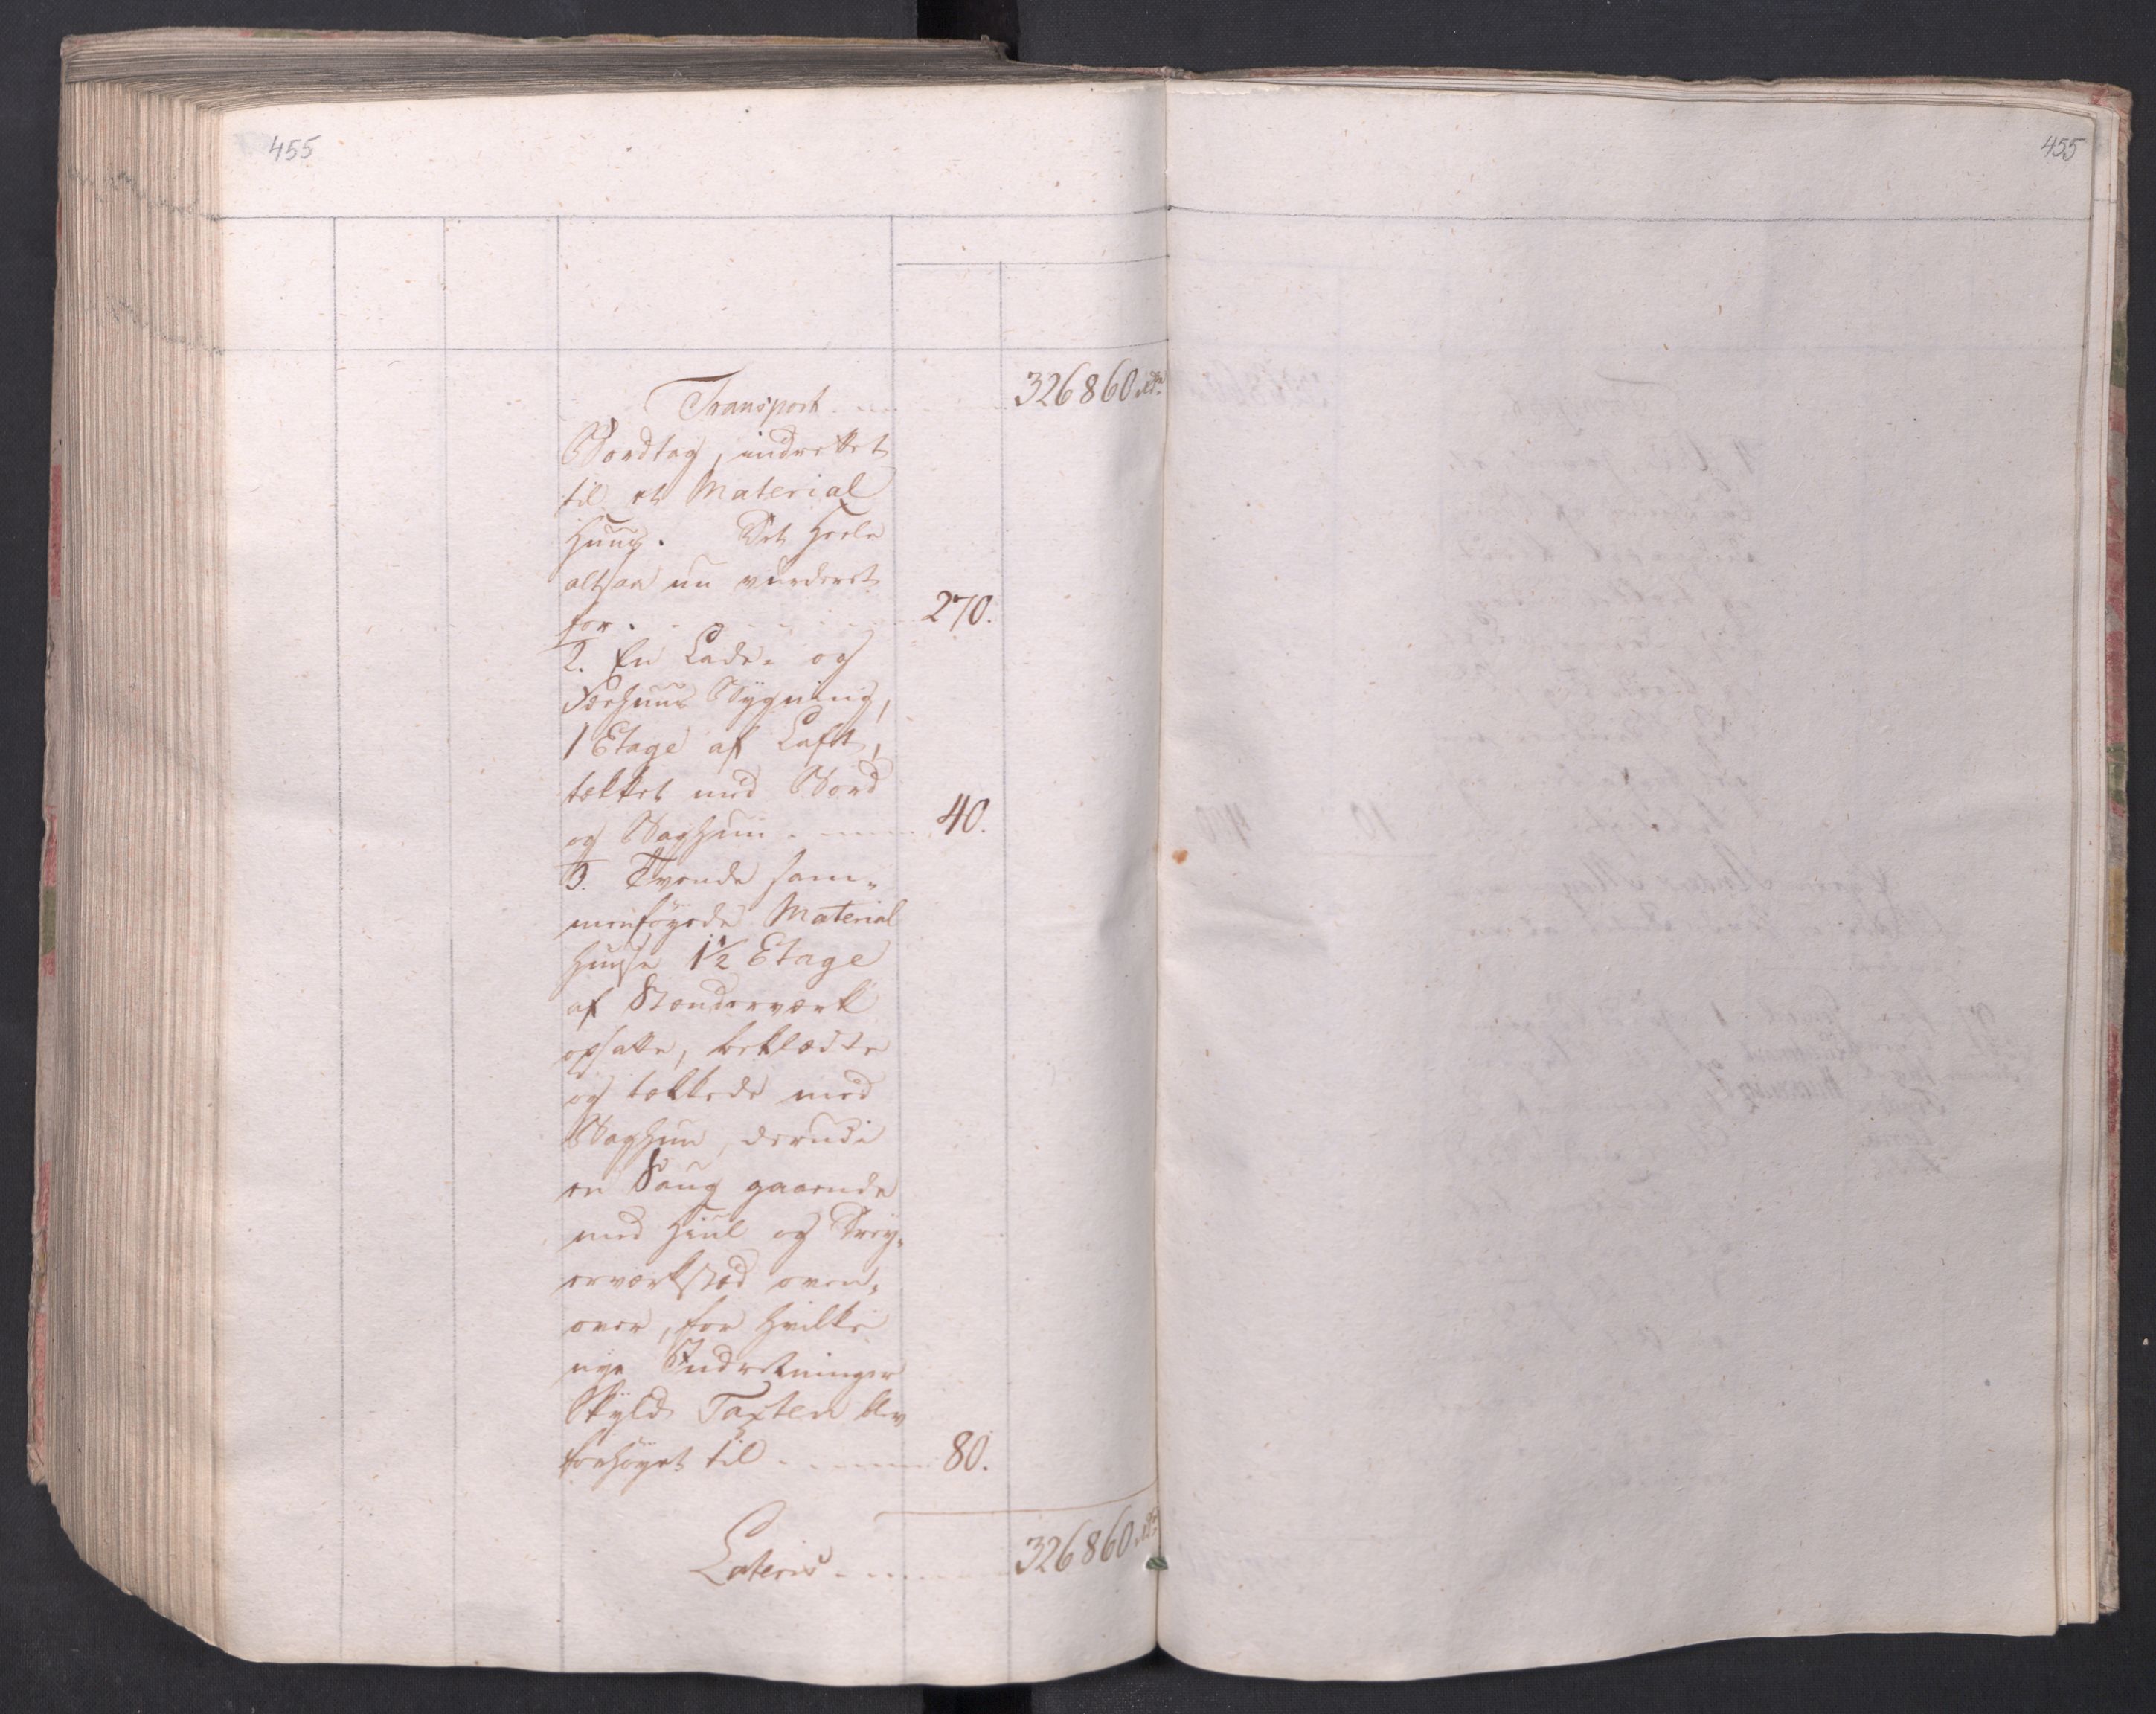 455
455
Transport - - - 326860 rd.
Bordtag, indrettet
til et Material
Huus. Det Heele
altsaa nu vurderet
for - - - 270.
2. En Lade- og
Færhuus Bygning,
1 Etage af Laft,
tækket med Bord
og Baghun - - - 40.
3. Tvende sam-
menføyede Material
Huuse 1½ Etage
af Stænderværk
opsatte, beklædte
og tækkede med
Baghun, derudi
en Saug gaaende
med Hiul og Drey-
erværksted oven-
over, for hvilke
nye Indretninger
Skyld Taxten blev
forhøyet til - - - 80.
Lateris - - - 326860 rd.